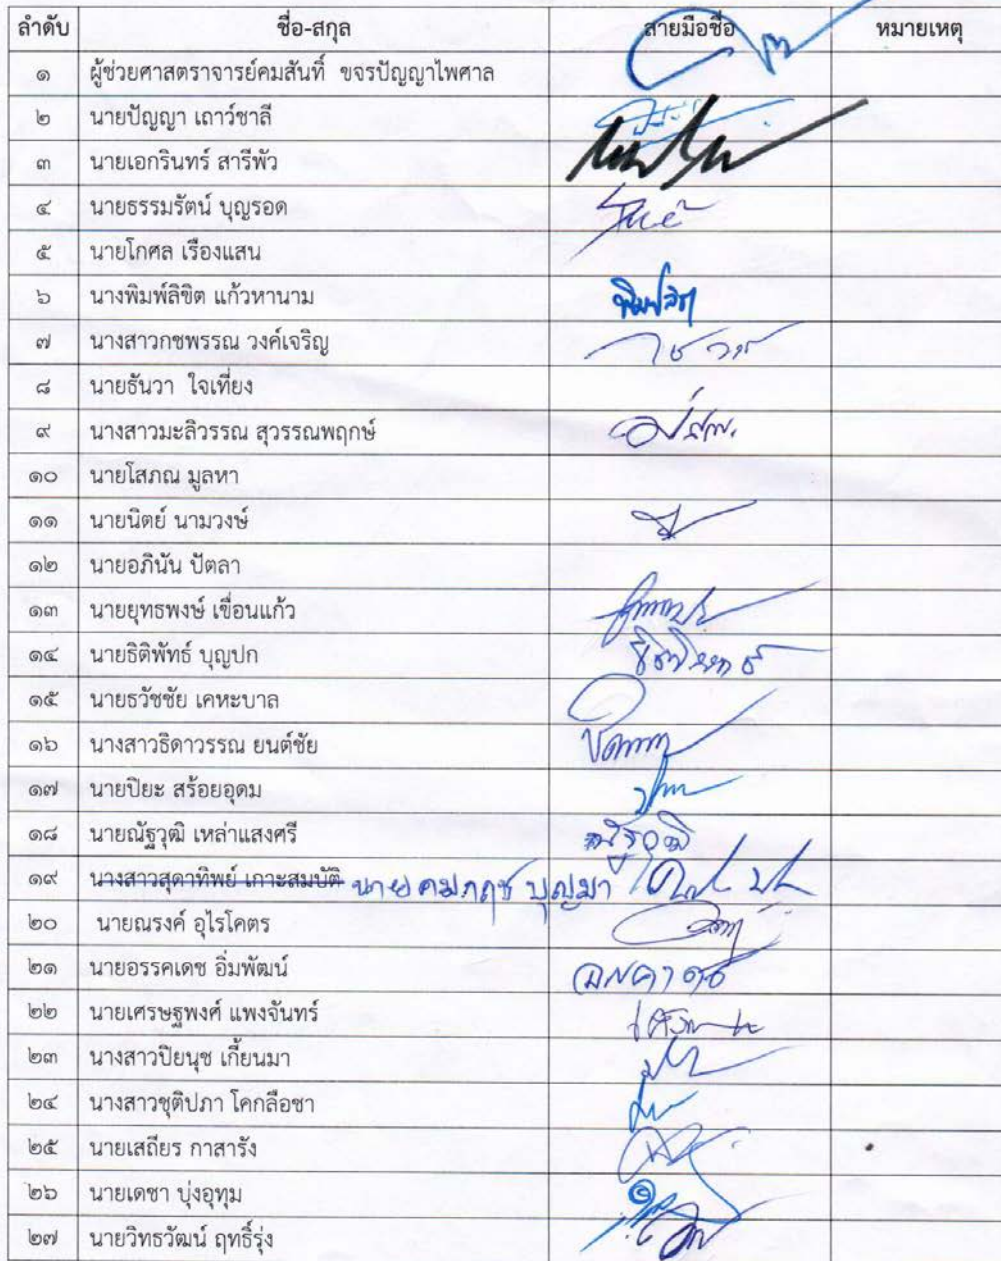 ลำดับ ชื่อ-สกุล ลายมือชื่อ หมายเหตุ
๑ ผู้ช่วยศาสตราจารย์คมสันทิ์ ขจรปัญญาไพศาล
๒ นายปัญญา เถาว์ชาลี
๓ นายเอกรินทร์ สารีพัว
๔ นายธรรมรัตน์ บุญรอด
๕ นายโกศล เรืองแสน
๖ นางพิมพ์ลิขิต แก้วหานาม
๗ นางสาวกชพรรณ วงค์เจริญ
๘ นายธันวา ใจเที่ยง
๙ นางสาวมะลิวรรณ สุวรรณพฤกษ์
๑๐ นายโสภณ มูลหา
๑๑ นายนิตย์ นามวงษ์
๑๒ นายอภินัน ปัตลา
๑๓ นายยุทธพงษ์ เขื่อนแก้ว
๑๔ นายธิติพัทธ์ บุญปก
๑๕ นายธวัชชัย เคหะบาล
๑๖ นางสาวธิดาวรรณ ยนต์ชัย
๑๗ นายปิยะ สร้อยอุดม
๑๘ นายณัฐวุฒิ เหล่าแสงศรี
๑๙ นางสาวสุดาทิพย์ เกาะสมบัติ นายคมกฤช บุญมา
๒๐ นายณรงค์ อุไรโคตร
๒๑ นายอรรคเดช อิ่มพัฒน์
๒๒ นายเศรษฐพงศ์ แพงจันทร์
๒๓ นางสาวปิยนุช เกี้ยนมา
๒๔ นางสาวชุติปภา โคกลือชา
๒๕ นายเสถียร กาสารัง
๒๖ นายเดชา บุ่งอุทุม
๒๗ นายวิทธวัฒน์ ฤทธิ์รุ่ง